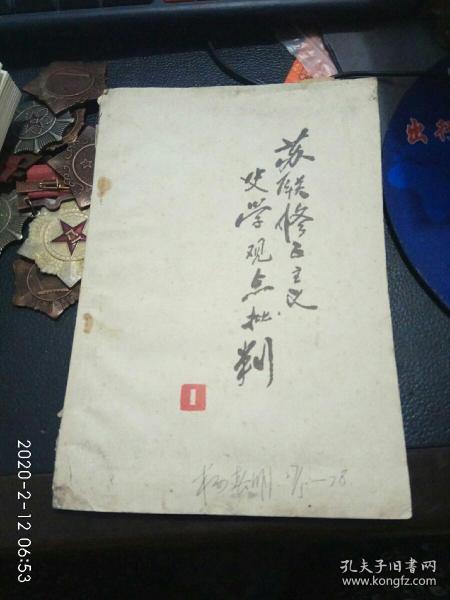 苏联修正主义
史学观点批判
1
出
2020-2-12 06:53
孔夫子旧书网
www.kongfz.com